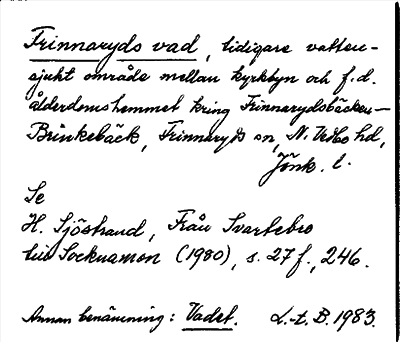 Frinnaryds vad, tidigare vatten-
sjukt område mellan kyrkbyn och f.d.
ålderdomshemmet kring Frinnarydsbäcken—
Brinkebäck, Frinnaryds sn, N. Vedbo hd,
Jönk. l.
Se
H. Sjöstrand, Från Svartebro
till Socknamon (1980), s. 27 f., 246.
Annan benämning: Vadet. L.-t. B. 1983.